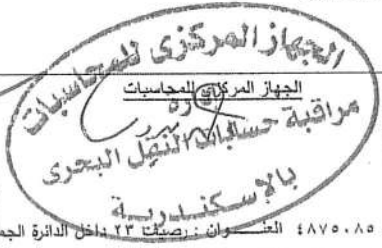 الجهاز المركزى للمحاسبات
الجهاز المركزي للمحاسبات
إدارة
مراقبة حسابات النقل البحرى
بالإسكندرية
٤٨٧٥٠٨٥ العنـــوان : رصيف ٢٣ داخل الدائرة